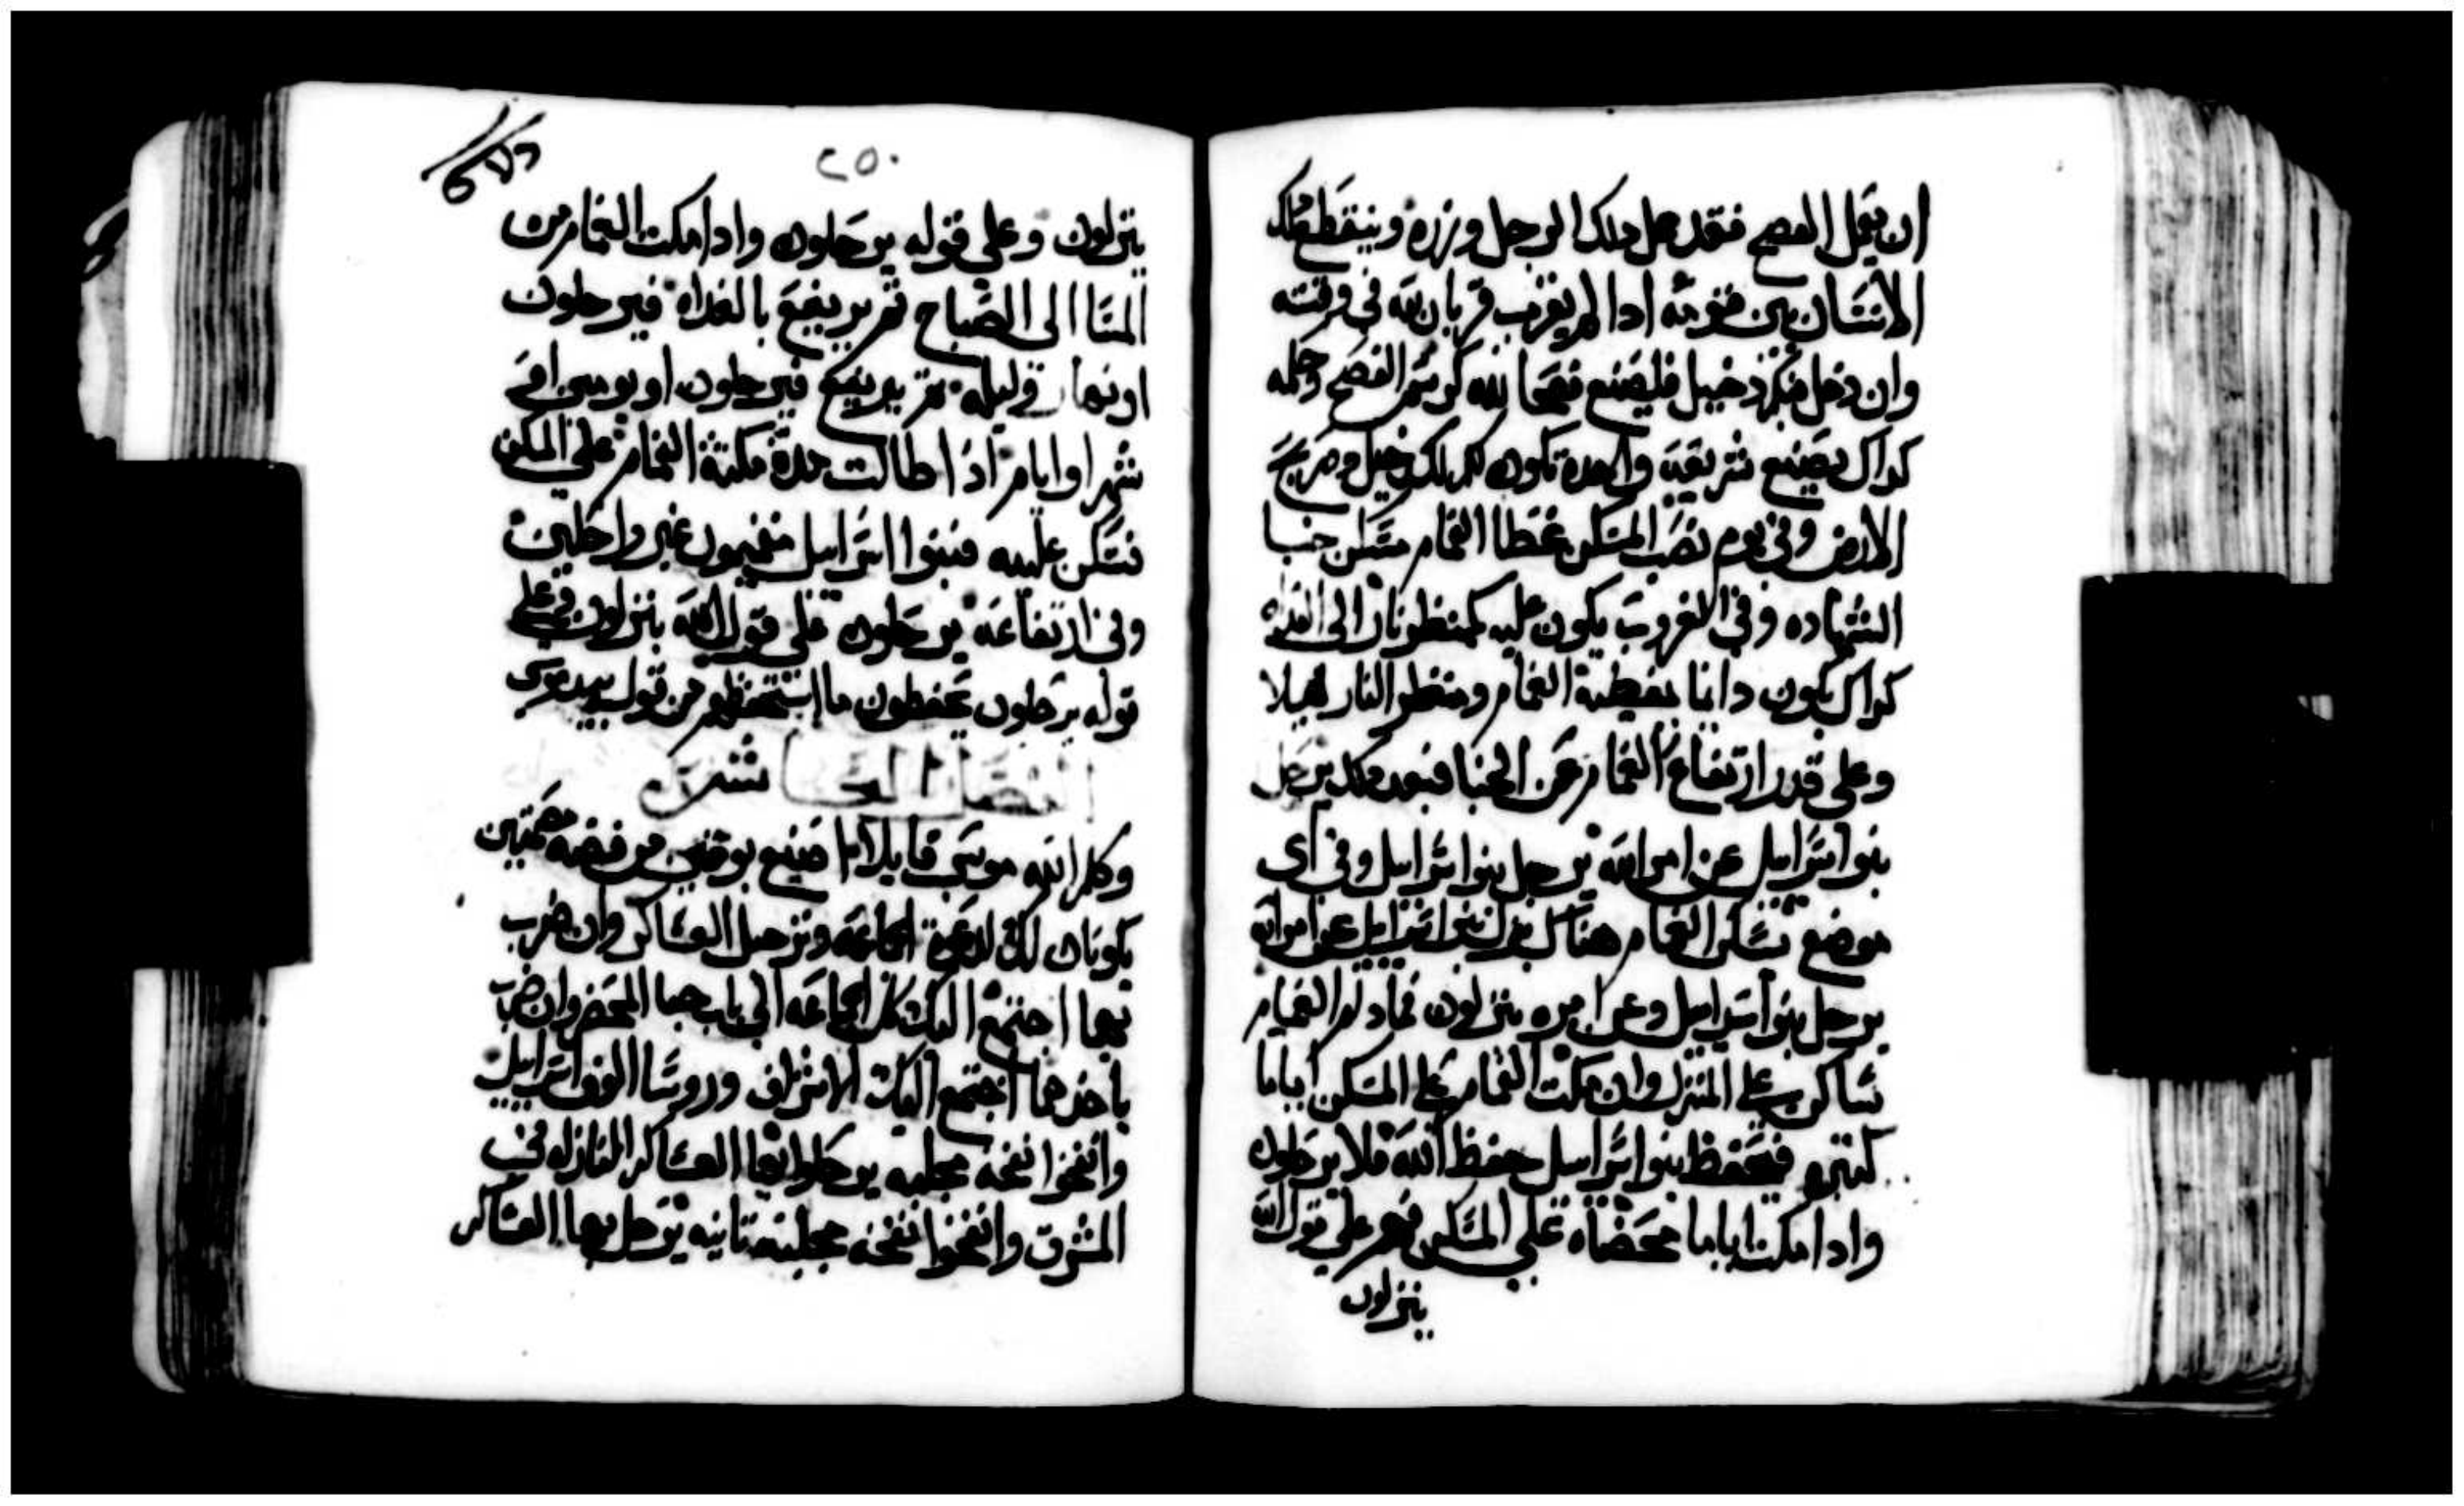 ان يعمل الفصح فقد حمل دلك الرجل وزره وينقطع دلك
الانسان من قومه ادا لم يقرب قربان الله في وقته
وان دخل فيكم دخيل فليصنع فصحا لله كرسم الفصح وحكمه
كداك يصنع شريعه واحده تكون لكم لكل دخيل وصريح
الارض وفي يوم نصب المسكن غطا الغمام مسكن خبا
الشهاده وفي الغروب يكون عليه كمنظر نار الى الغداه
كداك يكون دايما بغطيه الغمام ومنظر النار ليلا
وعلى قدر ارتفاع الغمام عن الخبا فبعد دلك يرحل
بنوا اسراييل عن امر الله يرحل بنوا اسراييل وفي اى
موضع يسكن الغمام هناك ينزل بنوا اسراييل عن امر الله
يرحل بنوا اسراييل وعن امره ينزلون فمادام الغمام
ساكن على المنزل وان مكت الغمام على المسكن اياما
كتيره فيحفظ بنوا اسراييل حفظ الله فلا يرحلون
وادا مكت اياما محصاه على المسكن فهم على قول الله
ينزلون
٢٥٠
ينزلون وعلى قوله يرحلون وادا مكت الغمام من
المسا الى الصباح تم يرتفع بالغداه فيرحلون
او نهار وليله تم يرتفع فيرحلون او يومين او في
شهر او ايام ادا طالت مدة مكتة الغمام على المسكن
فسكن عليه فبنوا اسراييل مقيمون غير راحلين
وفي ارتفاعه يرحلون على قول الله ينزلون وعلى
قوله يرحلون يحفظون ما استحفظهم من قول بيد موسى
الفصل الحا شر
وكلم الله موسى قايلا اصنع بوقين من فضه مصمتين
يكونان لك لدعوة الجماعه وترحيل العساكر وان ضرب
بهما اجتمع اليك كل الجماعه الى باب خبا المحضر وان ضرب
باحدهما اجتمع اليك الاشراف وروسا الوف اسراييل
وانفخوا نفخه مجلبه يرحلوا بها العساكر النازله في
المشرق وانفخوا نفخه مجلبه تانيه يرحل بها العساكر